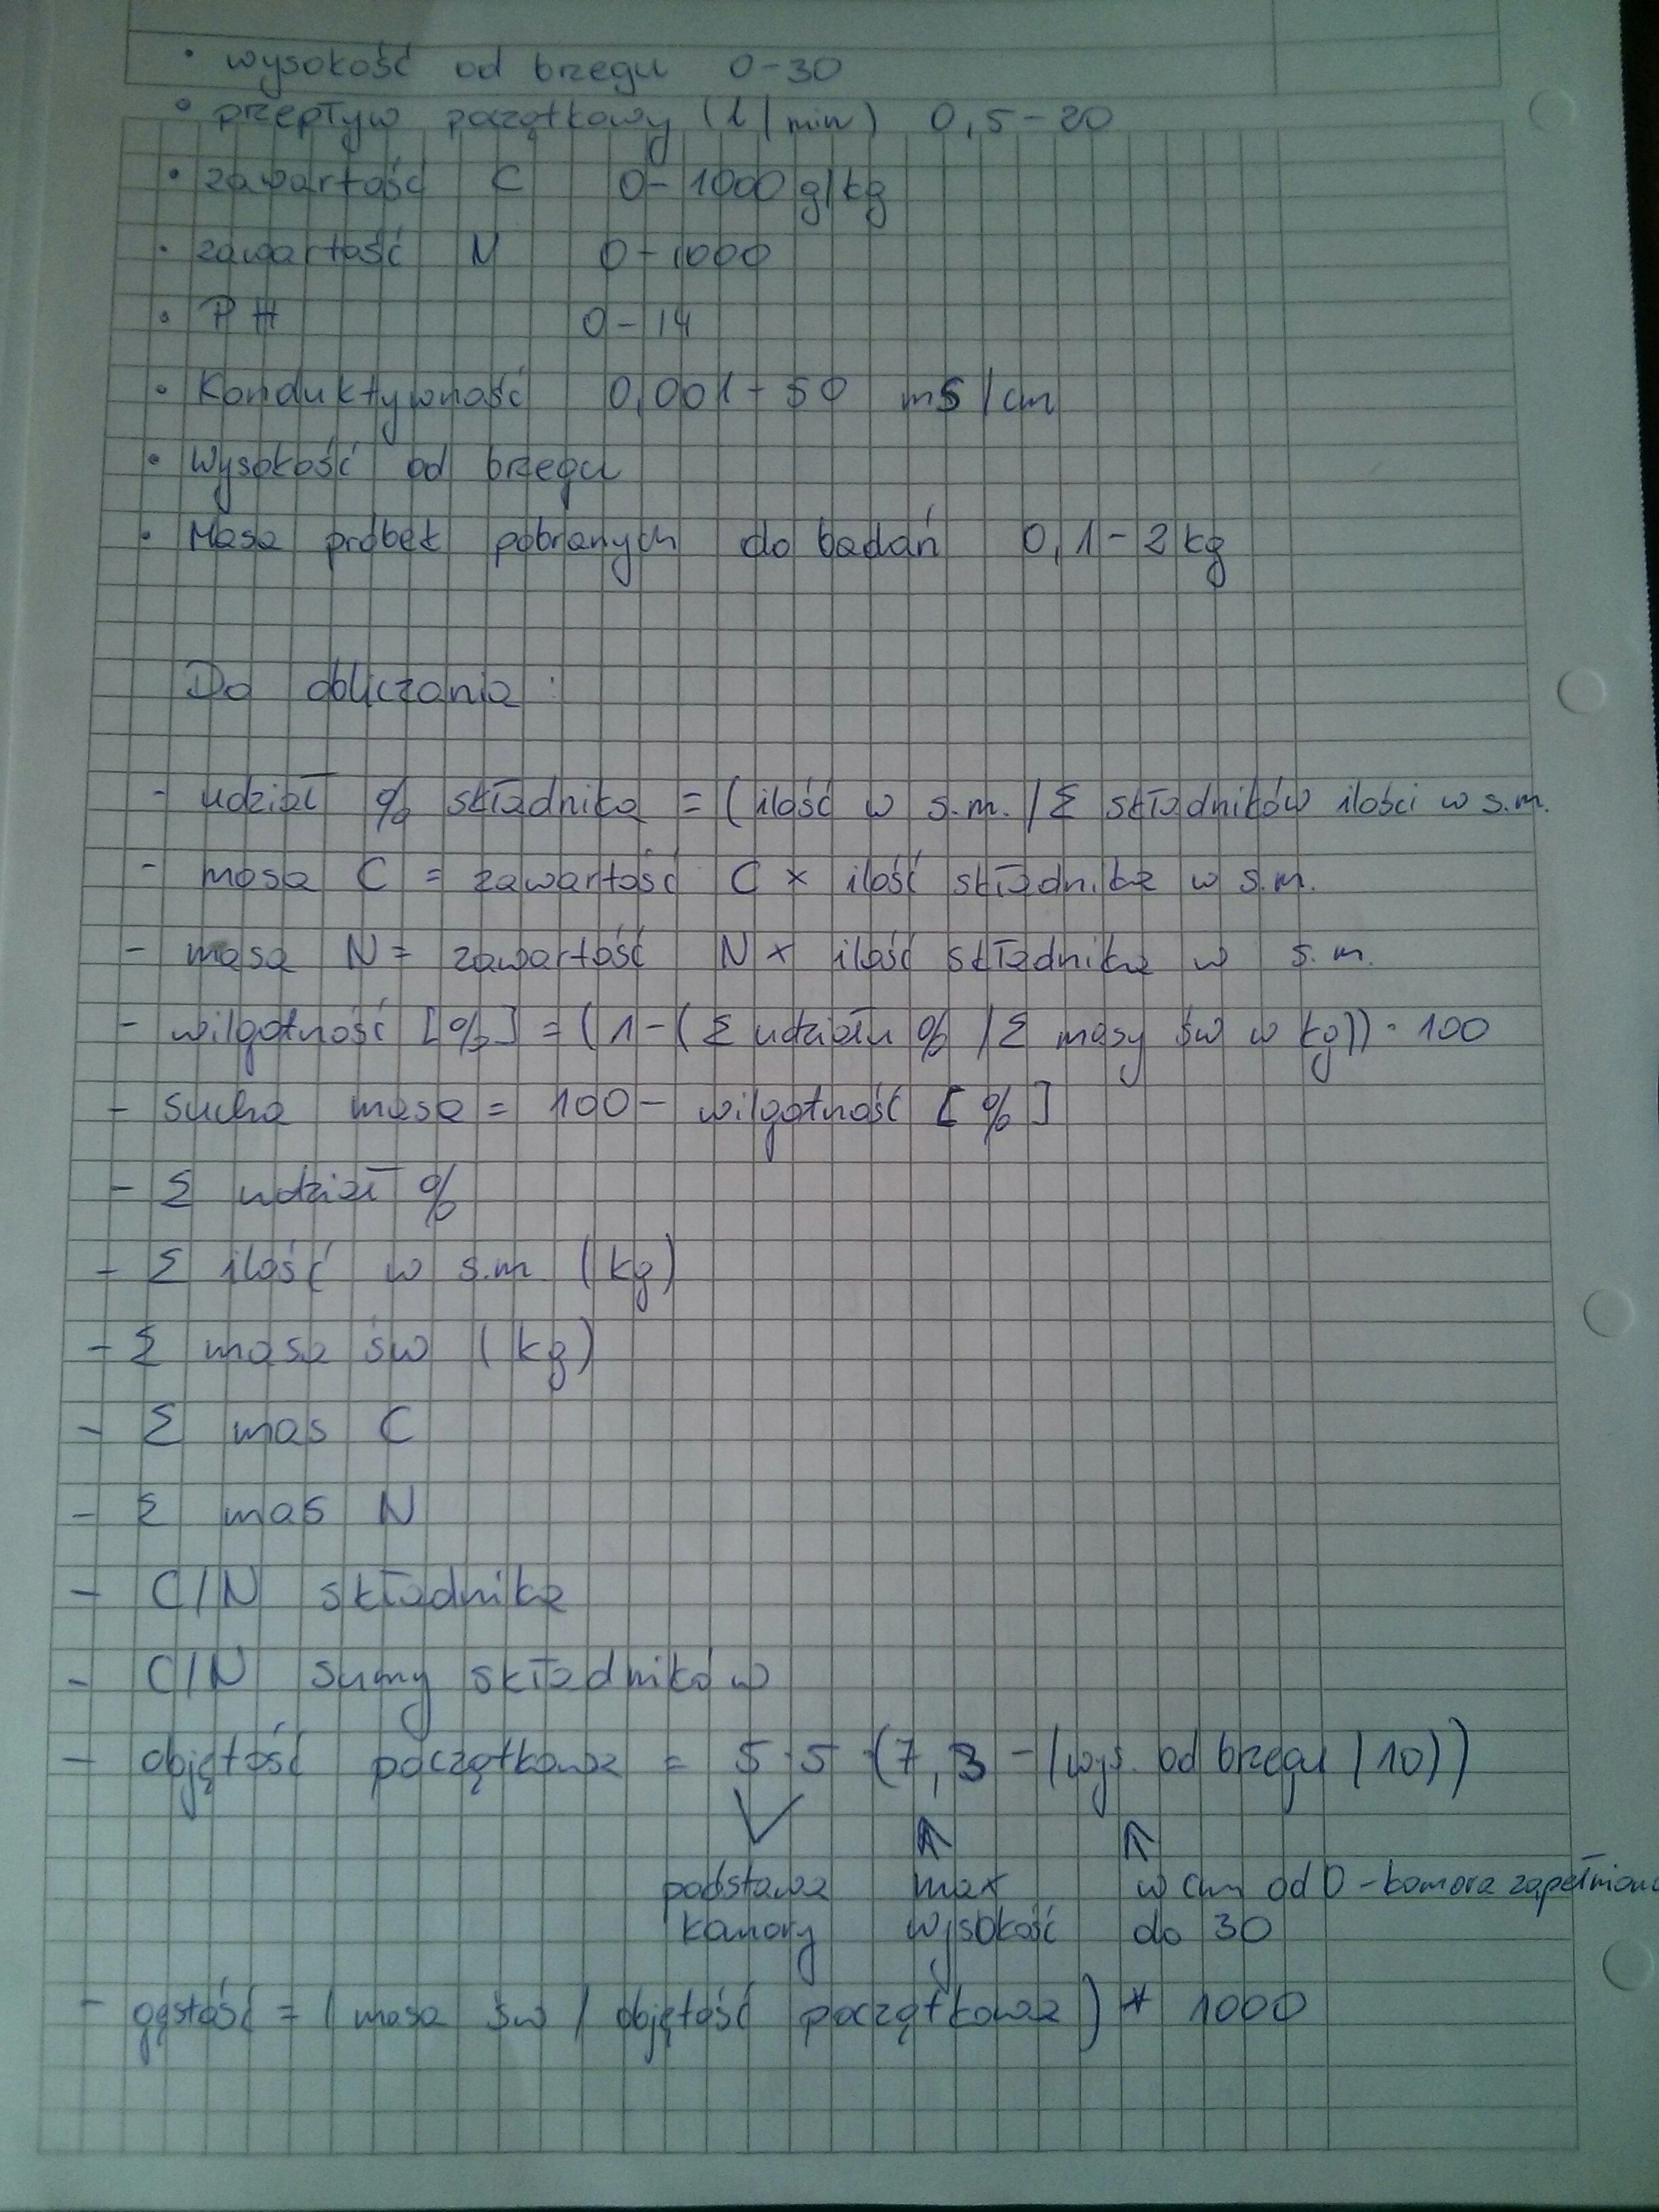 • wysokość od brzegu 0-30
• przepływ początkowy (l/min) 0,5-20
• zawartość C 0-1000 g/kg
• zawartość N 0-1000
• PH 0-14
• Konduktywność 0,001-50 mS/cm
• Wysokość od brzegu
• Masa próbek pobranych do badań 0,1-2 kg
Do obliczania:
- udział % składnika = (ilość w s.m. / Σ składników ilości w s.m.
- masa C = zawartość C x ilość składnika w s.m.
- masa N = zawartość N x ilość składnika w s.m.
- wilgotność [%] = (1-(Σ udziału % / Σ masy św w kg)) · 100
- sucha masa = 100 - wilgotność [%]
- Σ udział %
- Σ ilość w s.m (kg)
- Σ masa św (kg)
- Σ mas C
- Σ mas N
- C/N składnika
- C/N sumy składników
- objętość początkowa = 5·5·(7,3-(wys. od brzegu /10))
podstawa max w cm od 0 - komora zapełniona
komory wysokość do 30
- gęstość = (masa św / objętość początkowa) * 1000